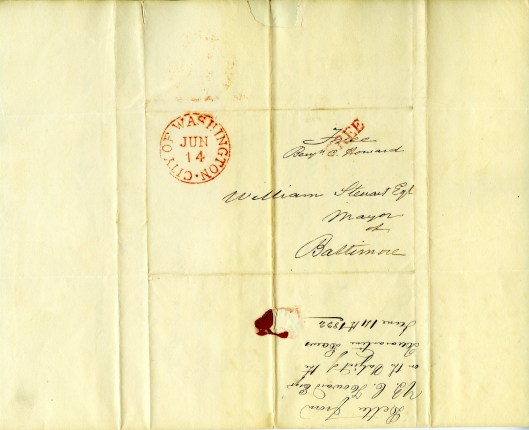 CITY OF WASHINGTON
JUN
14
FREE
Free
Benj. C. Howard
William Steuart Esq
Mayor
of
Baltimore
Letter from
B. C. Howard Esqr
on the subject of the
Quarantine Laws
June 14th 1832